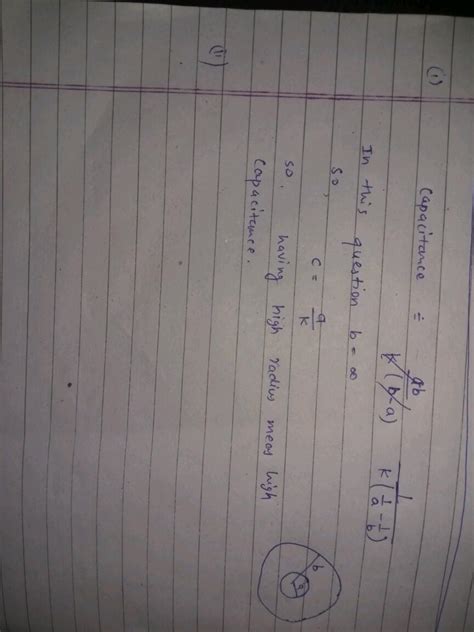 (i) Capacitance = ab / k(b-a)   1 / k(1/a - 1/b)
In this question b = ∞
So, C = a/k
so. having high radius meas high
Capacitance.
b
a
(ii)